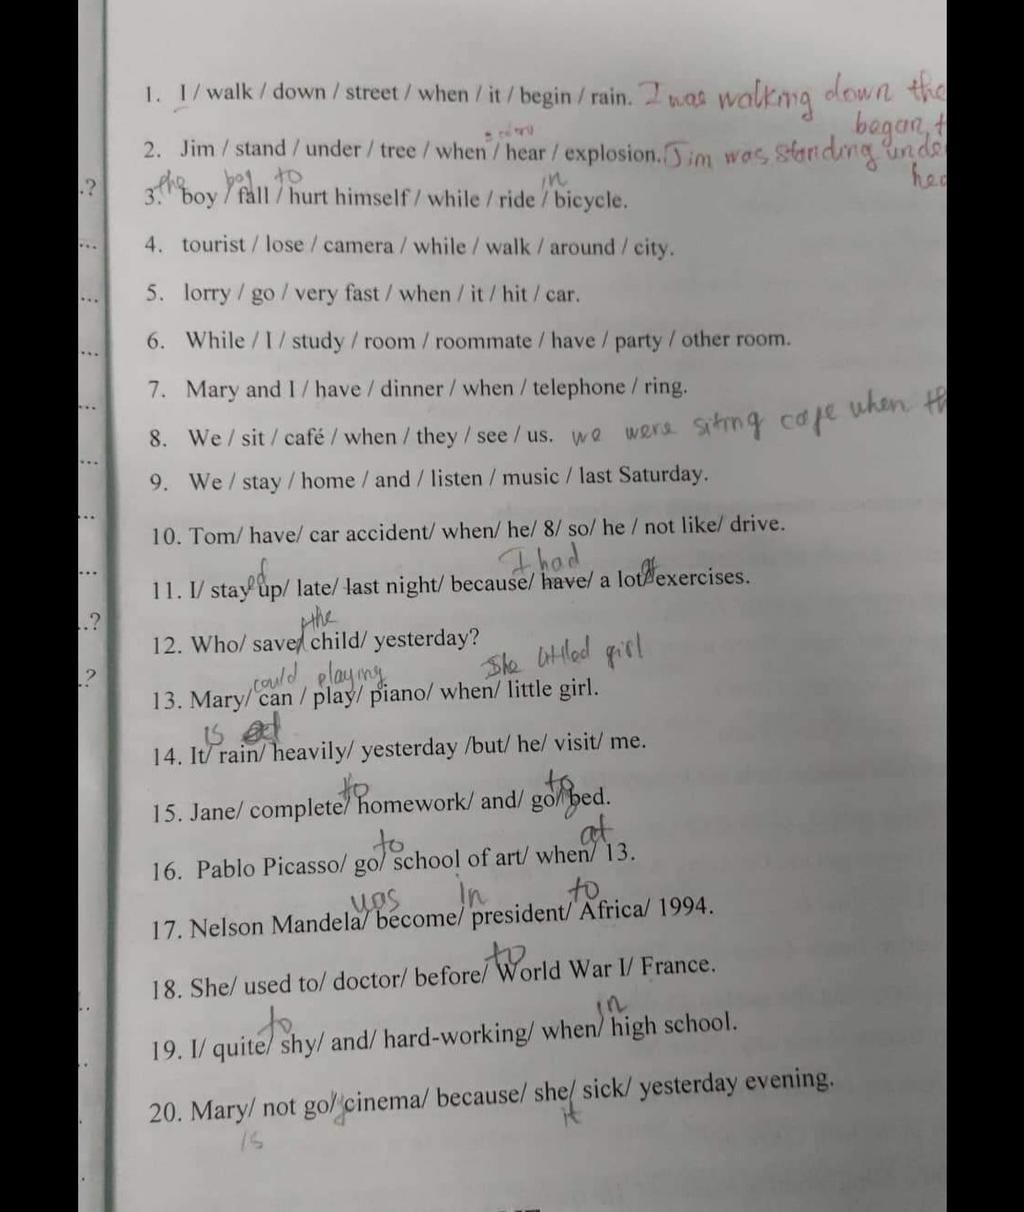 1. I / walk / down / street / when / it / begin / rain. I was walking down the
began, t
2. Jim / stand / under / tree / when / hear / explosion. Jim was standing unde
hea
the boy to in
.? 3. boy / fall / hurt himself / while / ride / bicycle.
... 4. tourist / lose / camera / while / walk / around / city.
... 5. lorry / go / very fast / when / it / hit / car.
... 6. While / I / study / room / roommate / have / party / other room.
... 7. Mary and I / have / dinner / when / telephone / ring.
8. We / sit / café / when / they / see / us. we were siting cafe when th
... 9. We / stay / home / and / listen / music / last Saturday.
... 10. Tom/ have/ car accident/ when/ he/ 8/ so/ he / not like/ drive.
I had of
... 11. I/ stay up/ late/ last night/ because/ have/ a lot exercises.
the
..? 12. Who/ save/ child/ yesterday?
could playing She littled girl
.? 13. Mary/ can / play/ piano/ when/ little girl.
is ed
14. It/ rain/ heavily/ yesterday /but/ he/ visit/ me.
to to
15. Jane/ complete/ homework/ and/ go/ bed.
to at
16. Pablo Picasso/ go/ school of art/ when/ 13.
was in to
17. Nelson Mandela/ become/ president/ Africa/ 1994.
to
18. She/ used to/ doctor/ before/ World War I/ France.
to in
19. I/ quite/ shy/ and/ hard-working/ when/ high school.
20. Mary/ not go/ cinema/ because/ she/ sick/ yesterday evening.
is it